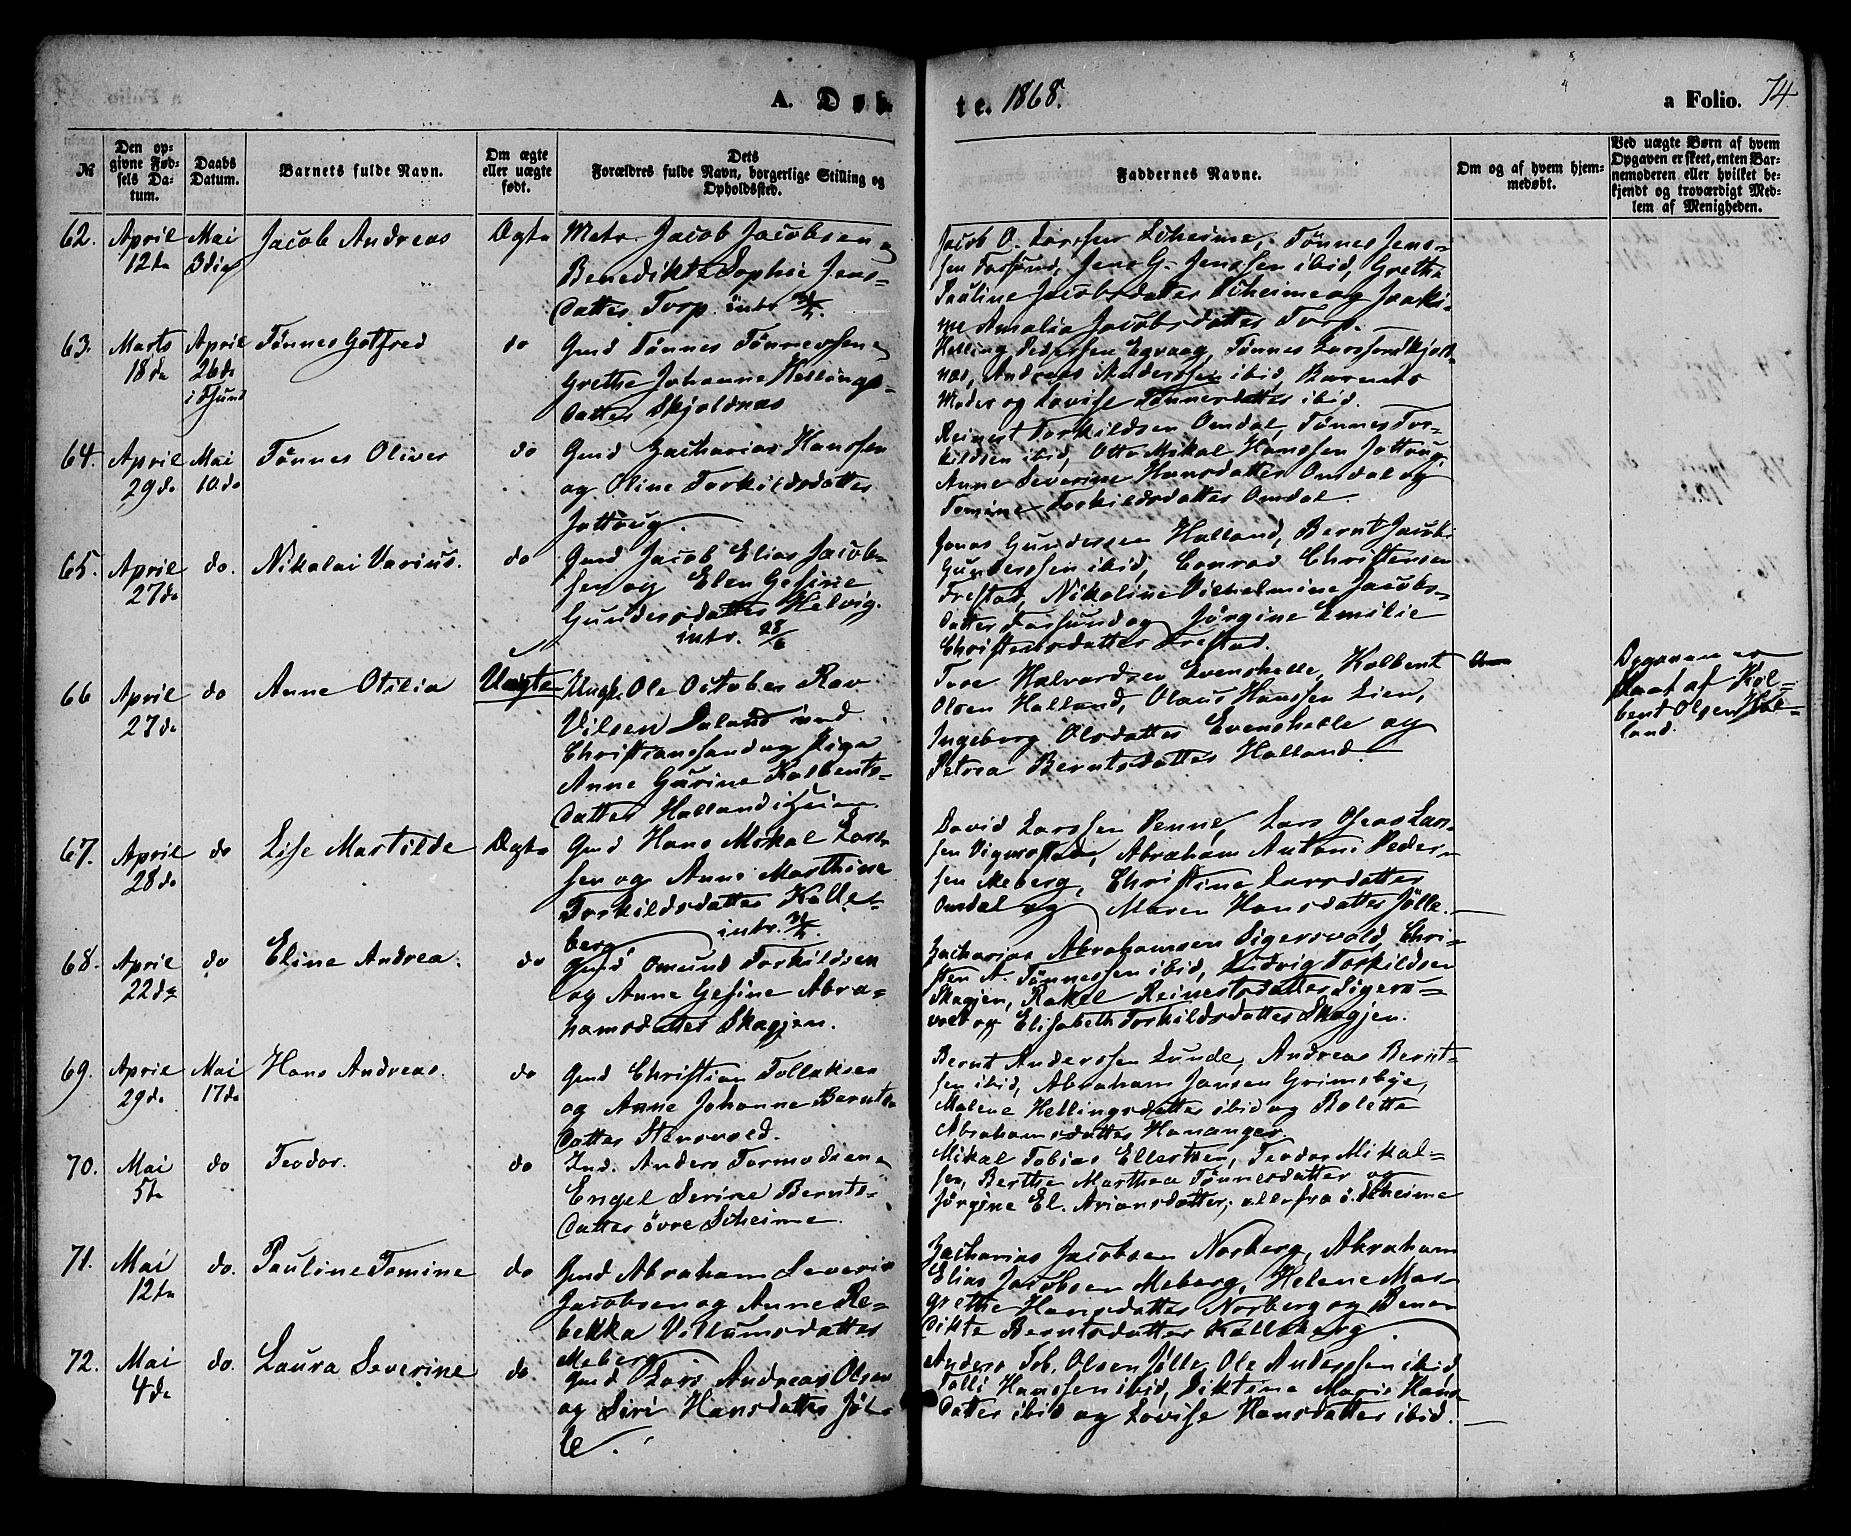 A. Døb
te. 1868.
a Folio. 74.
№
Den opgivne Fødsels Datum.
Daabs Datum.
Barnets fulde Navn.
Om ægte eller uægte født.
Dets Forældres fulde Navn, borgerlige Stilling og Opholdssted.
Faddernes Navne.
Om og af hvem hjemmedøbt.
Ved uægte Børn af hvem Opgaven er skeet, enten Barnemoderen eller hvilket bekjendt og troværdigt Medlem af Menigheden.
62. April 12te Mai 3die Jacob Andreas Ægte
Jacob Jacobsen og
Benedikte Sophie Jens-
datter Torp intr.
Jacob O. Larssen Scheime, Tønnes Jens-
sen Farsund, Jens G. Jenssen ibid, Grethe
Pauline Jacobsdatter Scheime og Joaki-
me Amalia Jacobsdatter Torp.
63. Marts 18de April 26de i Fsund Tønnes Gotfred do
Gmd Tønnes Tønnessen og
Grethe Johanne Hellings-
datter Skjoldnæs
Helling Pedersen Egvaag, Tønnes Larssen Skjold-
næs, Andreas Anderssen ibid, Barnets
Moder og Lovise Tønnesdatter ibid.
64. April 29de Mai 10de Tønnes Oliver do
Gmd Zacharias Hanssen
og Oline Torkildsdatter
Jottoug.
Reinert Torkildsen Omdal, Tønnes Tor-
kildsen ibid, Otto Mikal Hanssen Jottoug,
Anne Severine Hansdatter Omdal og
Tomine Torkildsdatter Omdal.
65. April 27de do. Nikolai Varius. do
Gmd Jacob Elias Jacob-
sen og Elen Gesine
Gundersdatter Helvig.
intr. 28/6
Jonas Gundersen Halland, Bernt Jacob
Gunderssen ibid, Conrad Christensen
Frestad, Nikoline Vilhelmine Jacobs-
datter Farsund og Jørgine Emilie
Christensdatter Frestad.
66 April 27de do Anne Otilia Uægte
Ungk. Ole October Rav
Vilsen Daland ved
Christianssand og Pige
Anne Gurine Kolbents-
datter Halland i
Tore Halvardsen Evenshelle, Kolbent
Olsen Halland, Olaus Hanssen Lien,
Ingeborg Olsdatter Evenshelle og
Petrea Berntsdatter Halland.
Opgaven er
gjort af Kol-
bent Olsen Hal-
land.
67. April 28de do Lise Martilde Ægte
Gmd Hans Mikal Lars-
sen og Anne Marthine
Torkildsdatter Kalle-
berg intr.
David Larssen Penne, Lars Oleas Lar-
sen Vigmostad, Abraham Antoni Peder-
sen Meberg, Christine Larsdatter
Omdal og Maren Hansdatter Jølle.
68. April 22de do Eline Andrea. do
Gmd Omund Torkildsen
og Anne Gesine Abra-
hamsdatter Skagjen.
Zacharias Abrahamsen Sigersvold, Chri-
sten A. Tønnessen ibid, Ludvig Torkildsen
Skagjen, Rakel Reinertsdatter Sigers-
vold og Elisabeth Torkildsdatter Skagjen.
69. April 29de Mai 17de Hans Andreas. do
Gmd Christian Tollaksen
og Anne Johanne Bernts-
datter Stensvold.
Bernt Anderssen Lunde, Andreas Bernt-
sen ibid, Abraham Jansen Grimsbye,
Malene Hellingsdatter ibid og Bolette
Abrahamsdatter Hananger.
70. Mai 5te do Teodor. do
Ind. Anders Tormodsen og
Engel Serine Bernts-
datter övre Scheime.
Mikal Tobias Ellertsen, Teodor Mikal-
sen, Berthe Marthea Tönnesdatter og
Jørgine El. Ariansdatter, alle fra ö. Scheime
71. Mai 12te do. Pauline Tomine do
Gmd Abraham Severin
Jacobsen og Anne Re-
bekka Villumsdatter
Meberg
Zacharias Jacobsen Norberg, Abraham
Elias Jacobsen Meberg, Helene Mar-
grethe Hansdatter Norberg og Bene-
dikte Berntsdatter Kalleberg
72. Mai 4de do. Laura Severine do.
Gmd Lars Andreas Olsen
og Siri Hansdatter Jøl-
le.
Anders Tob. Olsen Jølle, Ole Anderssen ibid,
Tolli Hanssen ibid, Diktine Marie Hans-
datter ibid og Lovise Hansdatter ibid.